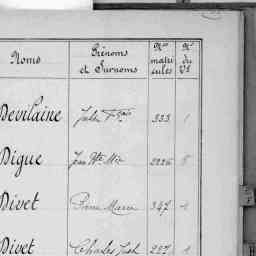 Noms Prénoms et Surnoms Nos matri cules No du Vt
Devilaine Jules Fçois 333 1
Digue Jean Bte Mie 2226 5
Divet Pierre Marie 347 1
Divet Charles Jsph 227 1